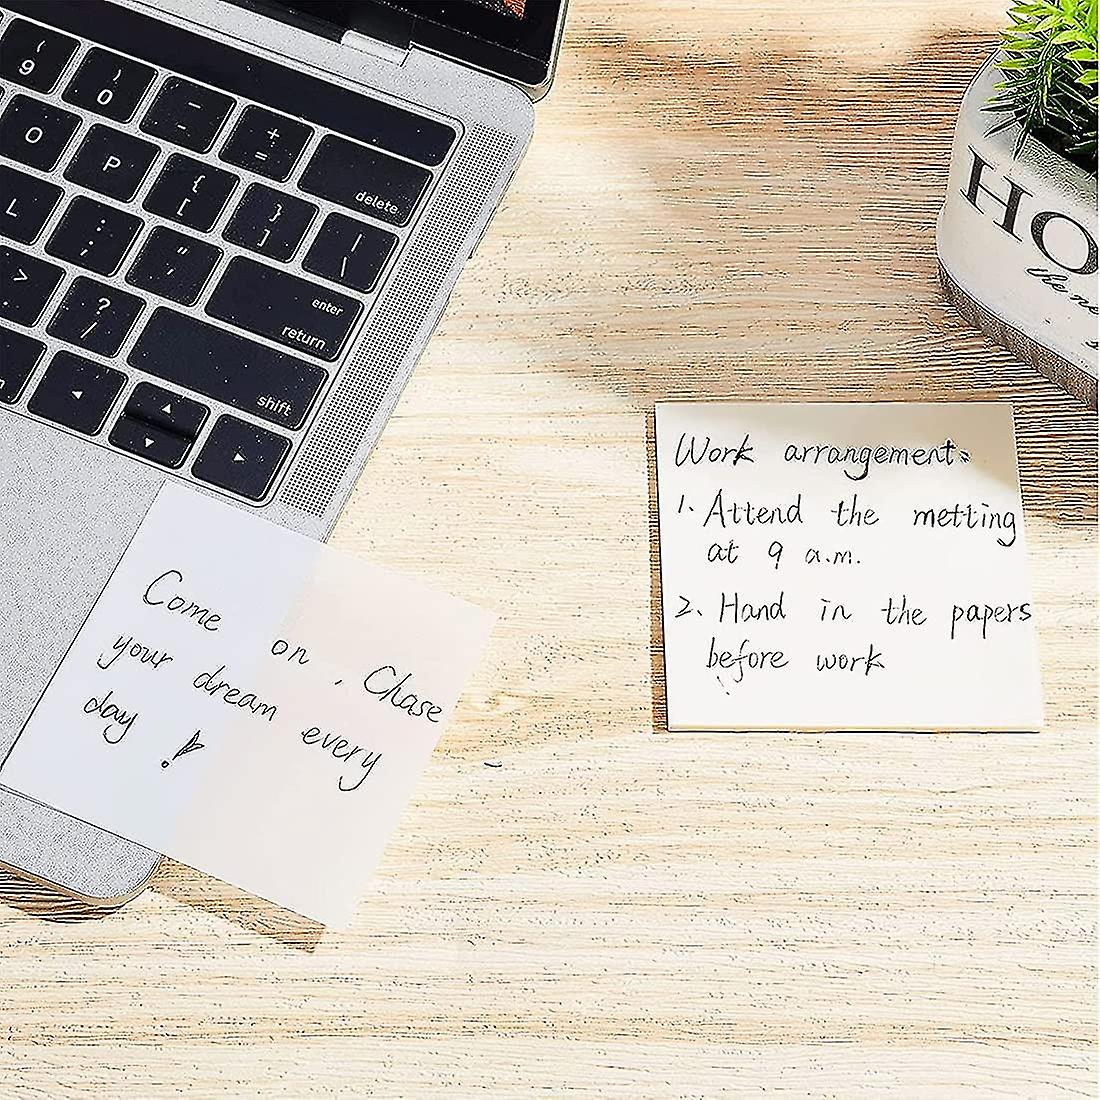 (
9
)
0
_
-
+
=
delete
O
P
{
[
}
]
|
\
L
:
;
"
'
enter
return
>
.
?
/
shift
HO
the ne
Come on, Chase
your dream every
day!
Work arrangement:
1. Attend the metting
at 9 a.m.
2. Hand in the papers
before work